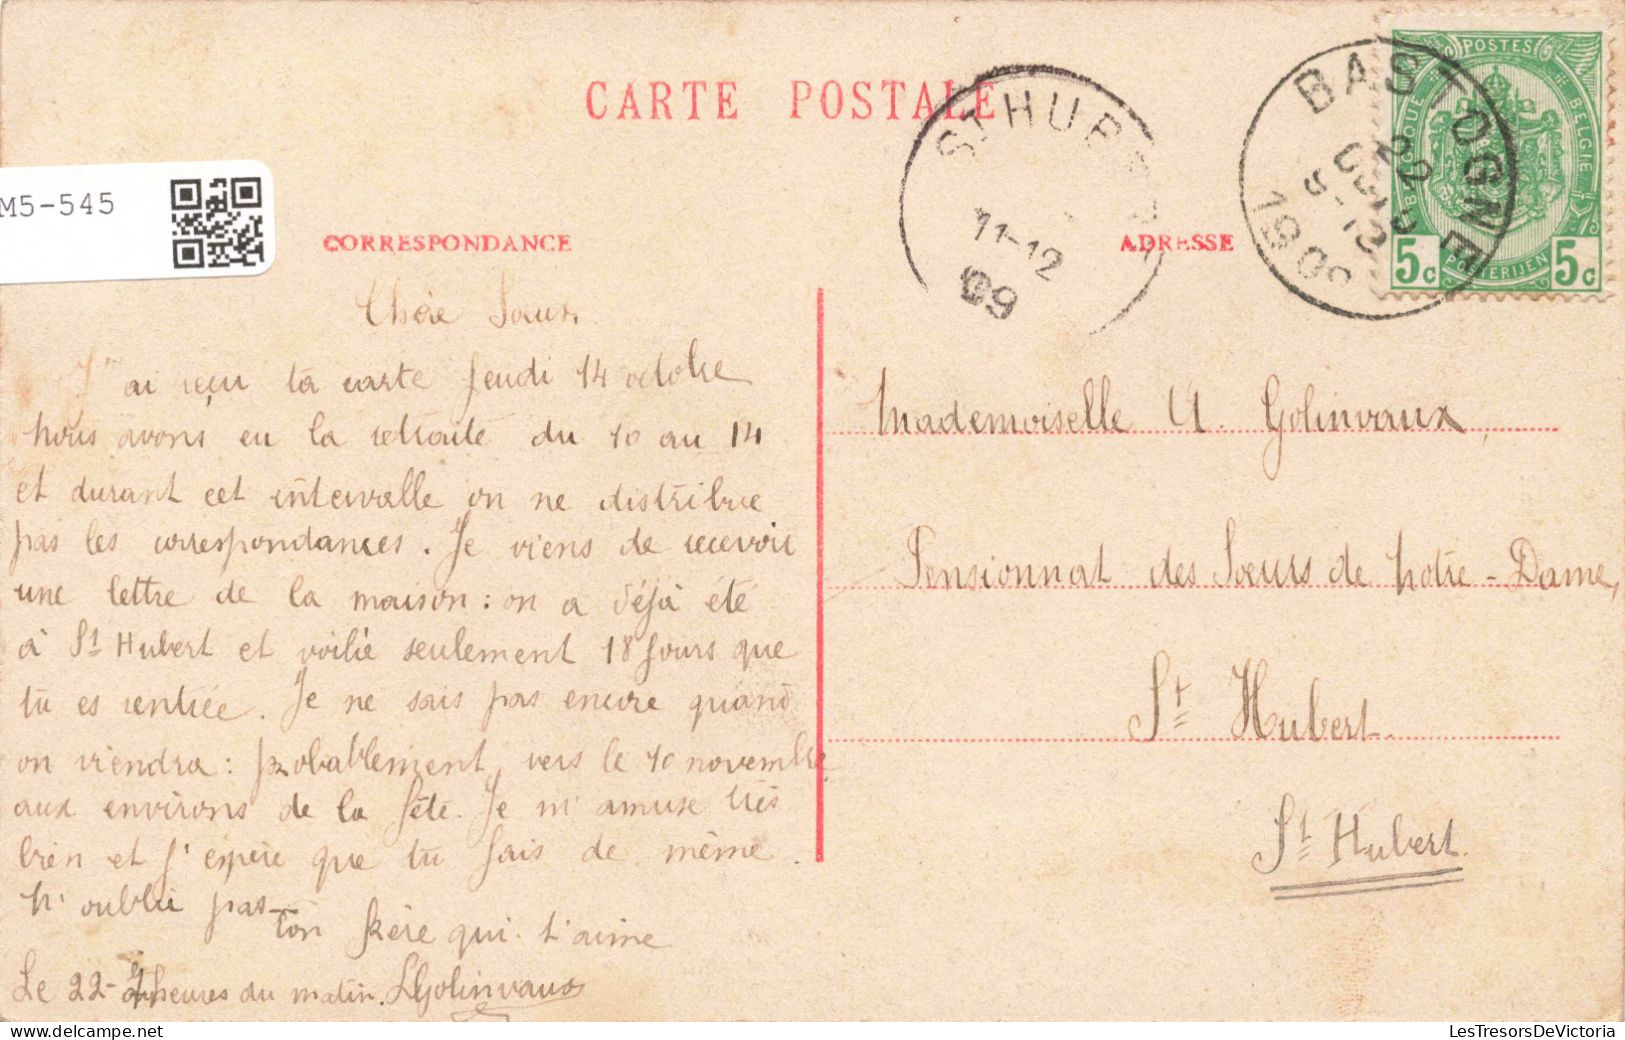 CARTE POSTALE
M5-545
CORRESPONDANCE
ADRESSE
ST HUBERT
11-12
09
BASTOGNE
22
1909
POSTES
BELGIQUE
BELGIE
POSTERIJEN
5c 5c
Chère Sœur,
J'ai reçu ta carte jeudi 14 octobre
nous avons eu la retraite du 10 au 14
et durant cet intervalle on ne distribue
pas les correspondances. Je viens de recevoir
une lettre de la maison : on a déjà été
à St Hubert et voilà seulement 18 jours que
tu es rentrée. Je ne sais pas encore quand
on viendra : probablement, vers le 10 novembre
aux environs de la fête. Je m'amuse très
bien et j'espère que tu fais de même.
N'oublie pas
Ton frère qui t'aime
Le 22 - heures du matin. LGolinvaux
Mademoiselle U. Golinvaux,
Pensionnat des Sœurs de Notre-Dame,
St Hubert.
St Hubert.
LesTresorsDeVictoria